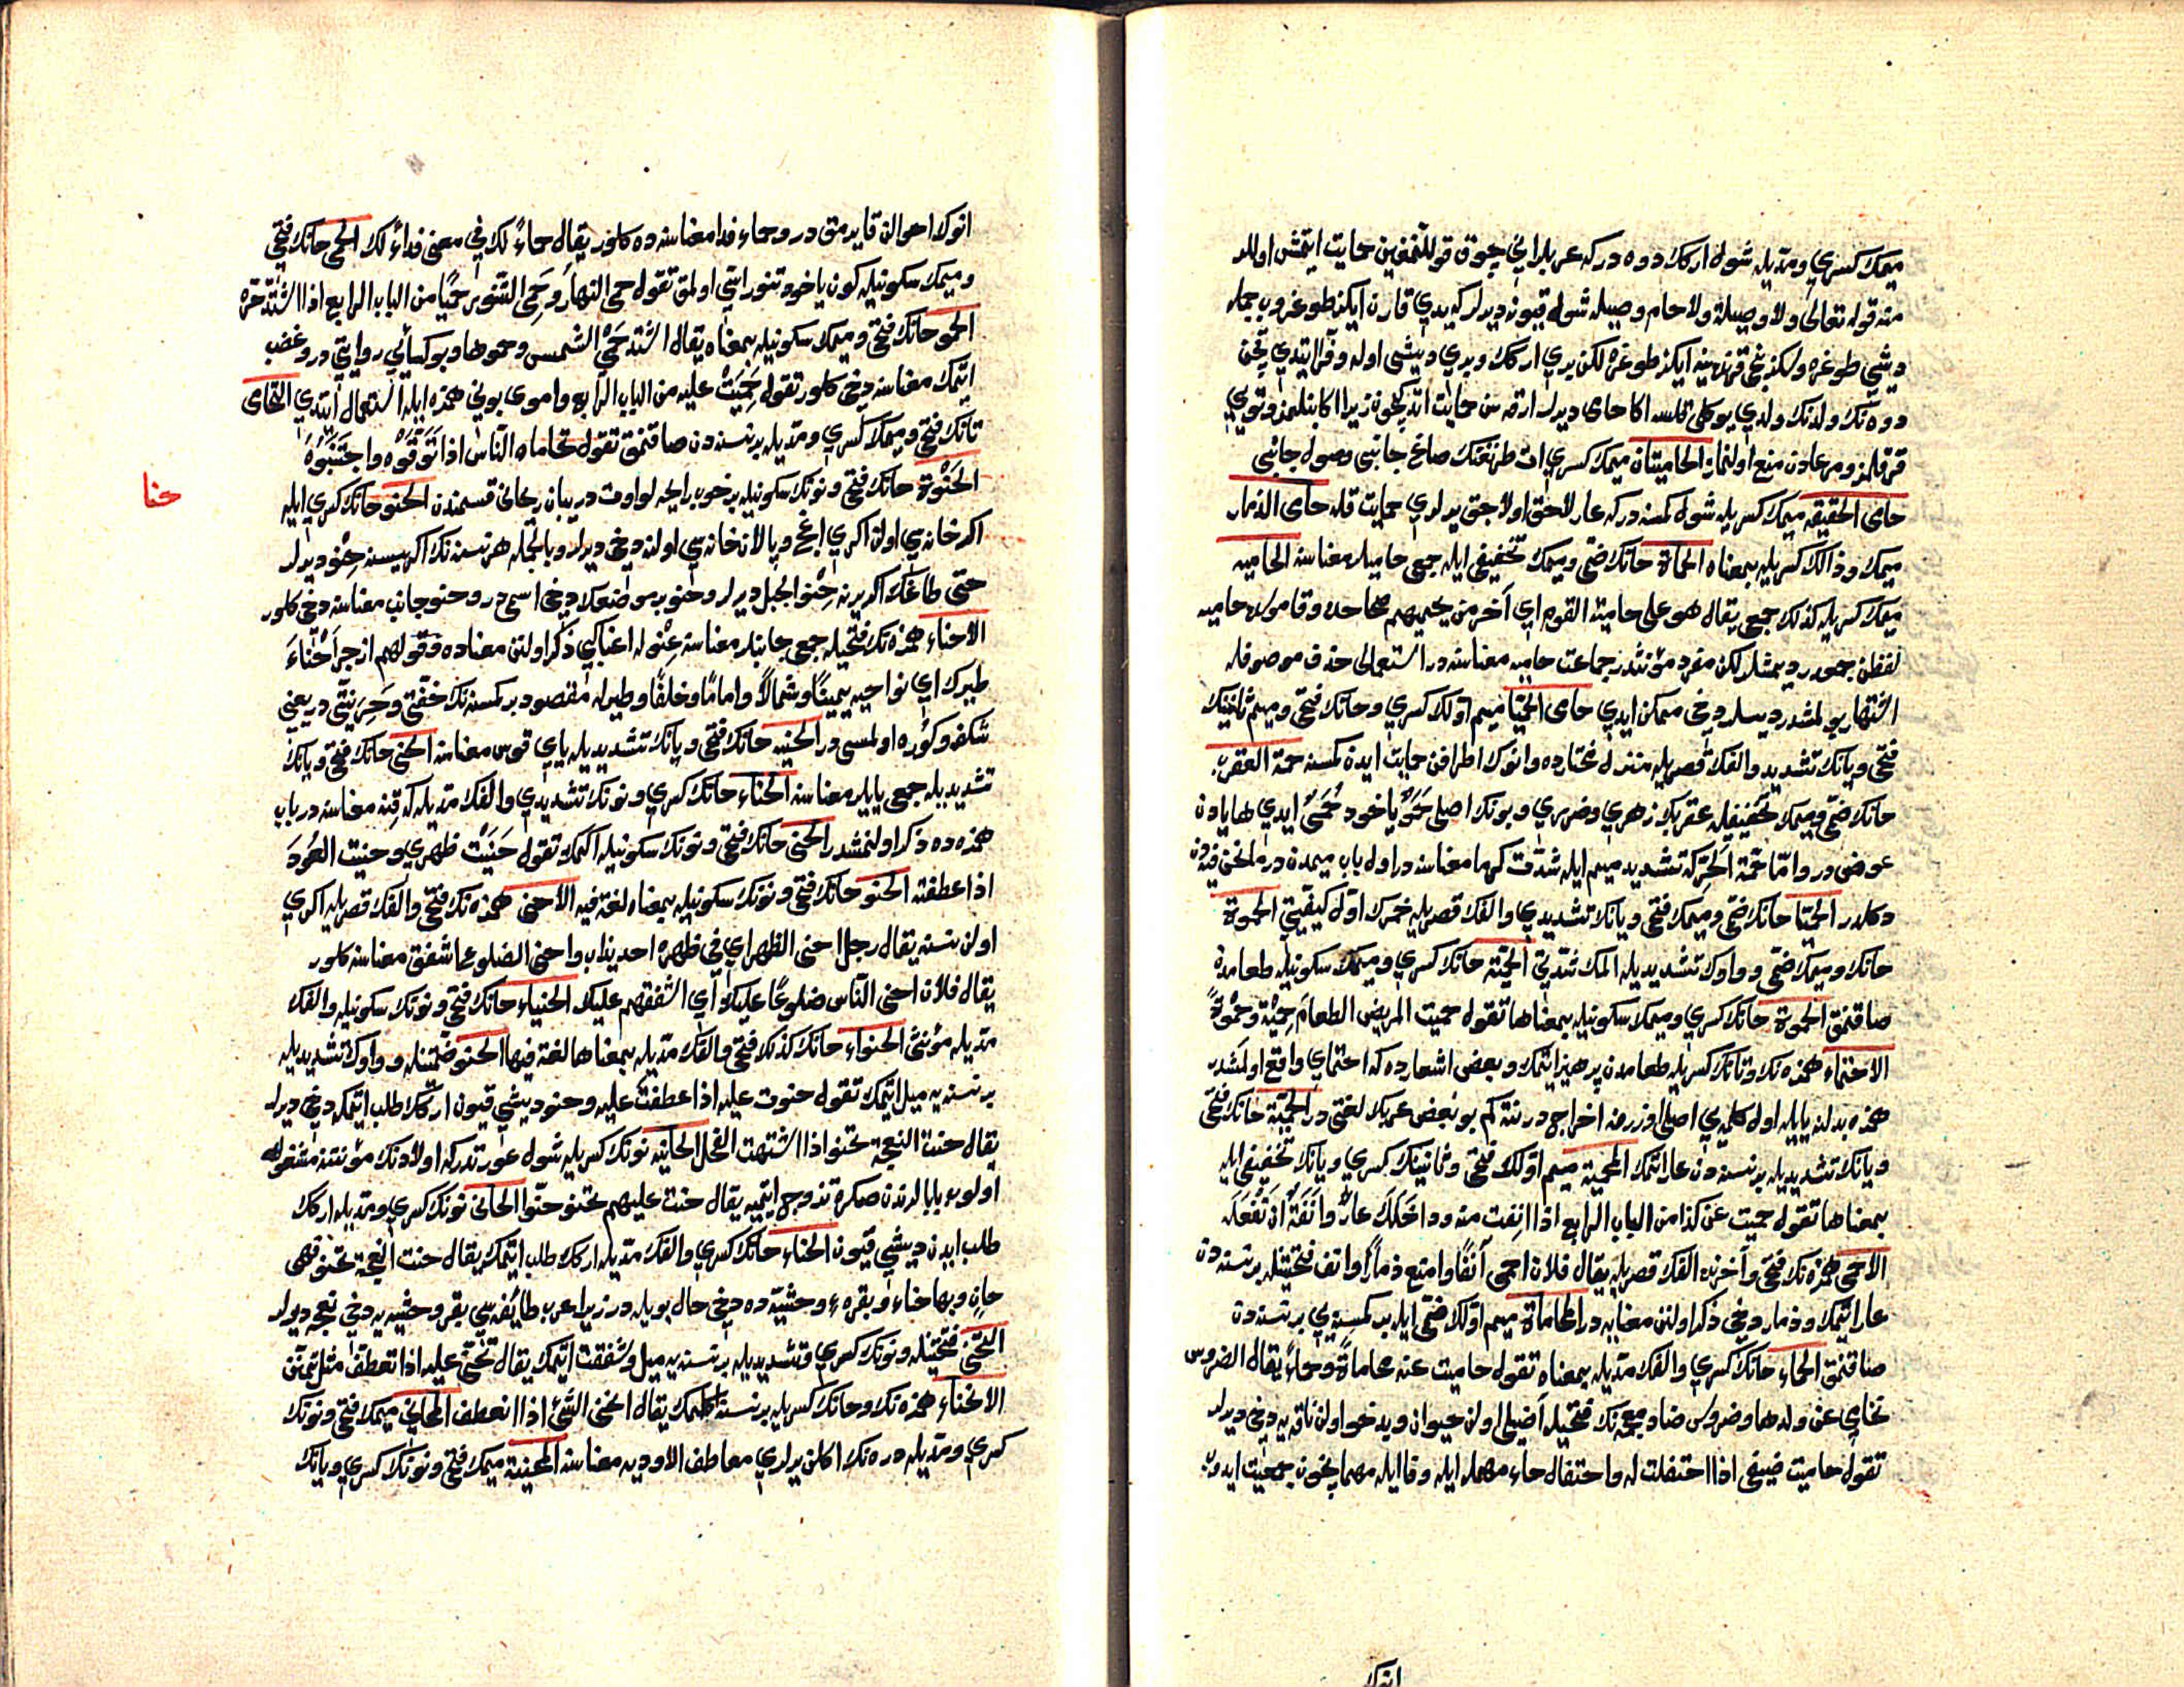 ميمك كسري ومدّيله شوله اركك دوه دركه عربلر انى چوق قوللنمغين حمايت ايتمش اولور
منه قوله تعالى ولا وصيلة ولا حام وصيله شوله قيونه ديرلر كه يدي قارن ايكز طوغروب جمله
ديشى طوغره ولكن يدنجى قرننده ينه ايكز طوغره لكن بري اركك وبري ديشى اوله
دوه نك ولدنك ولدي يوكلى اكا حامى ديرلر ارقه سن حمايت ايتديكيچون زيرا اكا بنلمز وتويي
قرقلمز ومرعادن منع اولنماز الحاميتان ميمك كسري ات طرنغنك صاغ جانبى وصول جانبى
حامى الحقيقه ميمك كسريله شول كمسنه دركه عار لاحق اولاجق يرلري حمايت قله حامى الذمار
ميمك وذالك كسريله بمعناه الحماة حانك ضمّى وميمك تخفيفى ايله جمع حاميلر معناسنه الحاميه
ميمك كسريله كذلك جمع يقال هو على حامية القوم اي آخر من يحميهم صحاحده وقاموسده حاميه
لفظن جمعدر ديمشلر لكن مفرد مؤنثدر جماعت حاميه معناسنه در استعمالى حذف موصوفله
اشتهار بولمشدر ديسلر دخى ممكن ايدي حامى الحميّا ميم اوّلك كسري وحانك فتحى وميم ثانينك
فتحى ويانك تشديد والفك قصريله منزله مختارده وانوك اطرافن حمايت ايدن كمسنه حمة العقرب
حانك ضمّى وميمك تخفيفيله عقربك زهري وضرري وبونك اصلى حُمَوٌ ياخود حُمَىٌ ايدي ها يادن
عوضدر وامّا حُمّة الحَرّ كه تشديد ميم ايله شدّت كرما معناسنه در اوله باب ميمدن در مانحن فيه دن
دكلدر الحميّا حانك ضمّى وميمك فتحى ويانك تشديدي والفك قصريله خمرك اوّل كيفيتى الحموة
حانك وميمك ضمّى وواوك تشديديله المك شدّتى الحمية حانك كسري وميمك سكونيله طعامدن
صاقنمق الحموة حانك كسري وميمك سكونيله بمعناها تقول حميت المريض الطعام حِمْيَة وحِمْوَةً
الاحتماء همزه نك وتانك كسريله طعامدن پرهيز ايتمك وبعض اشعارده كه احتماي واقع اولمشدر
همزه بدلنه يايله اول كلمه يي اصلى اوزرنه اخراج درنته كم بو بعض عربك لغتى در الحميّة حانك فتحى
ويانك تشديديله بر نسنه دن عار ايتمك المحمية ميم اوّلك فتحى وثانينك كسري ويانك تخفيفى ايله
بمعناها تقول حميت عن كذا من الباب الرابع اذا انفت منه وداخلك عار وانفة ان تفعله
الاحمى همزه نك فتحى وآخرنده الفك قصريله يقال فلان احمى آنفًا وامنع ذمارًا وانف فتحتينله بر نسنه دن
عار ايتمك وذمار دخى ذكر اولنن معنايه در المحاماة ميم اوّلك ضمّى ايله بر كمسنه يي بر نسنه دن
صاقنمق الحماء حانك كسري والفك مدّيله بمعناه تقول حاميت عنه محاماة وحماءً يقال الضروس
تحامى عن ولدها وضروس ضاد معجمه نك فتحيله اضيلى اولن حيوان وبدخو اولن ناقه يه دخى ديرلر
تقول حاميت ضيفى اذا احتفلت له واحتفال حاء مهمله ايله وفا ايله مهمانيچون جمعيت ايدوب
انوك
انوك احوالن قايرمق در وحماء فدا معناسنه ده كلور يقال حماءً لك في معنى فداءً لك الحمى حانك فتحى
وميمك سكونيله كون ياخود تنور اسّى اولمق تقول حمى النهار وحَمِىَ التنور حَمْيًا من الباب الرابع اذا اشتدّ حرّه
الحمو حانك فتحى وميمك سكونيله بمعناه يقال اشتد حَمْىُ الشمس وحموها وبو كسائي روايتى در وغضب
ايتمك معناسنه دخى كلور تقول حَمِيَتْ عليه من الباب الرابع واموى بونى همزه ايله استعمال ايتدي التحامى
تانك فتحى وميمك كسري ومدّيله بر نسنه دن صاقنمق تقول تحاماه النّاس اذا تَوَقّوْه واجتَنَبُوهُ
حنا
الحَنْوَة حانك فتحى ونونك سكونيله بر خوب رايحه لو اوت در يبان ريحانى قسمندن الحنو حانك كسري ايله
اكر خانه سي اولن اكري اغج وپالان خانه سي اولنه دخى ديرلر وبالجمله هر نسنه نك اكريسنه حِنْو ديرلر
حتى طاغك اكري يرنه حِنْو الجبل ديرلر وحنو بر موضعوك دخى اسمى در وحنو جانب معناسنه دخى كلور
الاحناء همزه نك فتحيله جمعى جانبلر معناسنه حِنْوله اعنا كبى ذكر اولنن معناده وقولهم ازجر اَحْنَاءَ
طيرك اي نواحيه يمينًا وشمالاً وامامًا وخلفًا وطيرله مقصود بر كمسنه نك خفّتى وحريّتى در يعنى
الحنيه حانك فتحى ويانك تشديديله ياي قوس معناسنه الحنى حانك فتحى ويانك
تشديديله جمعى يايلر معناسنه الحنّاء حانك كسري ونونك تشديدي والفك مدّيله كه قنه معناسنه در باب
همزه ده ذكر اولنمشدر الحنى حانك فتحى ونونك سكونيله اكمك تقول حَنَيْت ظهري وحنيت العُودَ
اذا عطفته الحنو حانك فتحى ونونك سكونيله بمعناه لغة فيه الاحنى همزه نك فتحى والفك قصريله اكري
اولن نسنه يقال رجل احنى الظهر اي فى ظهره احديداب واحنى الضلوع اشفق معناسنه كلور
يقال فلان احنى النّاس ضلوعًا عليك اي اشفقهم عليك الحنياء حانك فتحى ونونك سكونيله والفك
مدّيله مؤنّثى الحنواء حانك كذلك فتحى والفك مدّيله بمعناها لغة فيها الحنو ضمّتينله وواوك تشديديله
بر نسنه يه ميل ايتمك تقول حنوت عليه اذا عطفت عليه وحنو ديشى قيون اركك طلب ايتمكه دخى ديرلر
يقال حنت النعجة تحنو اذا اشتهت الفحل الحانيه نونك كسريله شول عورتدركه اولادنك مؤنتنه مشغول
اولوب بابالرندن صكره تزوج ايتميه يقال حنت عليهم تحنو حنّوا الحانى نونك كسري ومدّيله اركك
طلب ايدن ديشى قيون الحناء حانك كسري والفك مدّيله اركك طلب ايتمك يقال حنت النعجة تحنو فهى
حانٍ وبها حناء وبقره وحشيّه ده دخى حال بويله در زيرا عرب طائفه سي بقر وحشيه يه دخى نعجه ديرلر
التحنّى فتحتينله ونونك كسري وتشديديله بر نسنه يه ميل وشفقت ايتمك يقال تحنّى عليه اذا تعطّف مثل تحنّن
الانحناء همزه نك وحانك كسريله بر نسنه اكلمك يقال انحنى الشئ اذا انعطف المحاني ميمك فتحى ونونك
كسري ومدّيله دره نك اكلن يرلري معاطف الاوديه معناسنه المحنية ميمك فتحى ونونك كسري ويانك